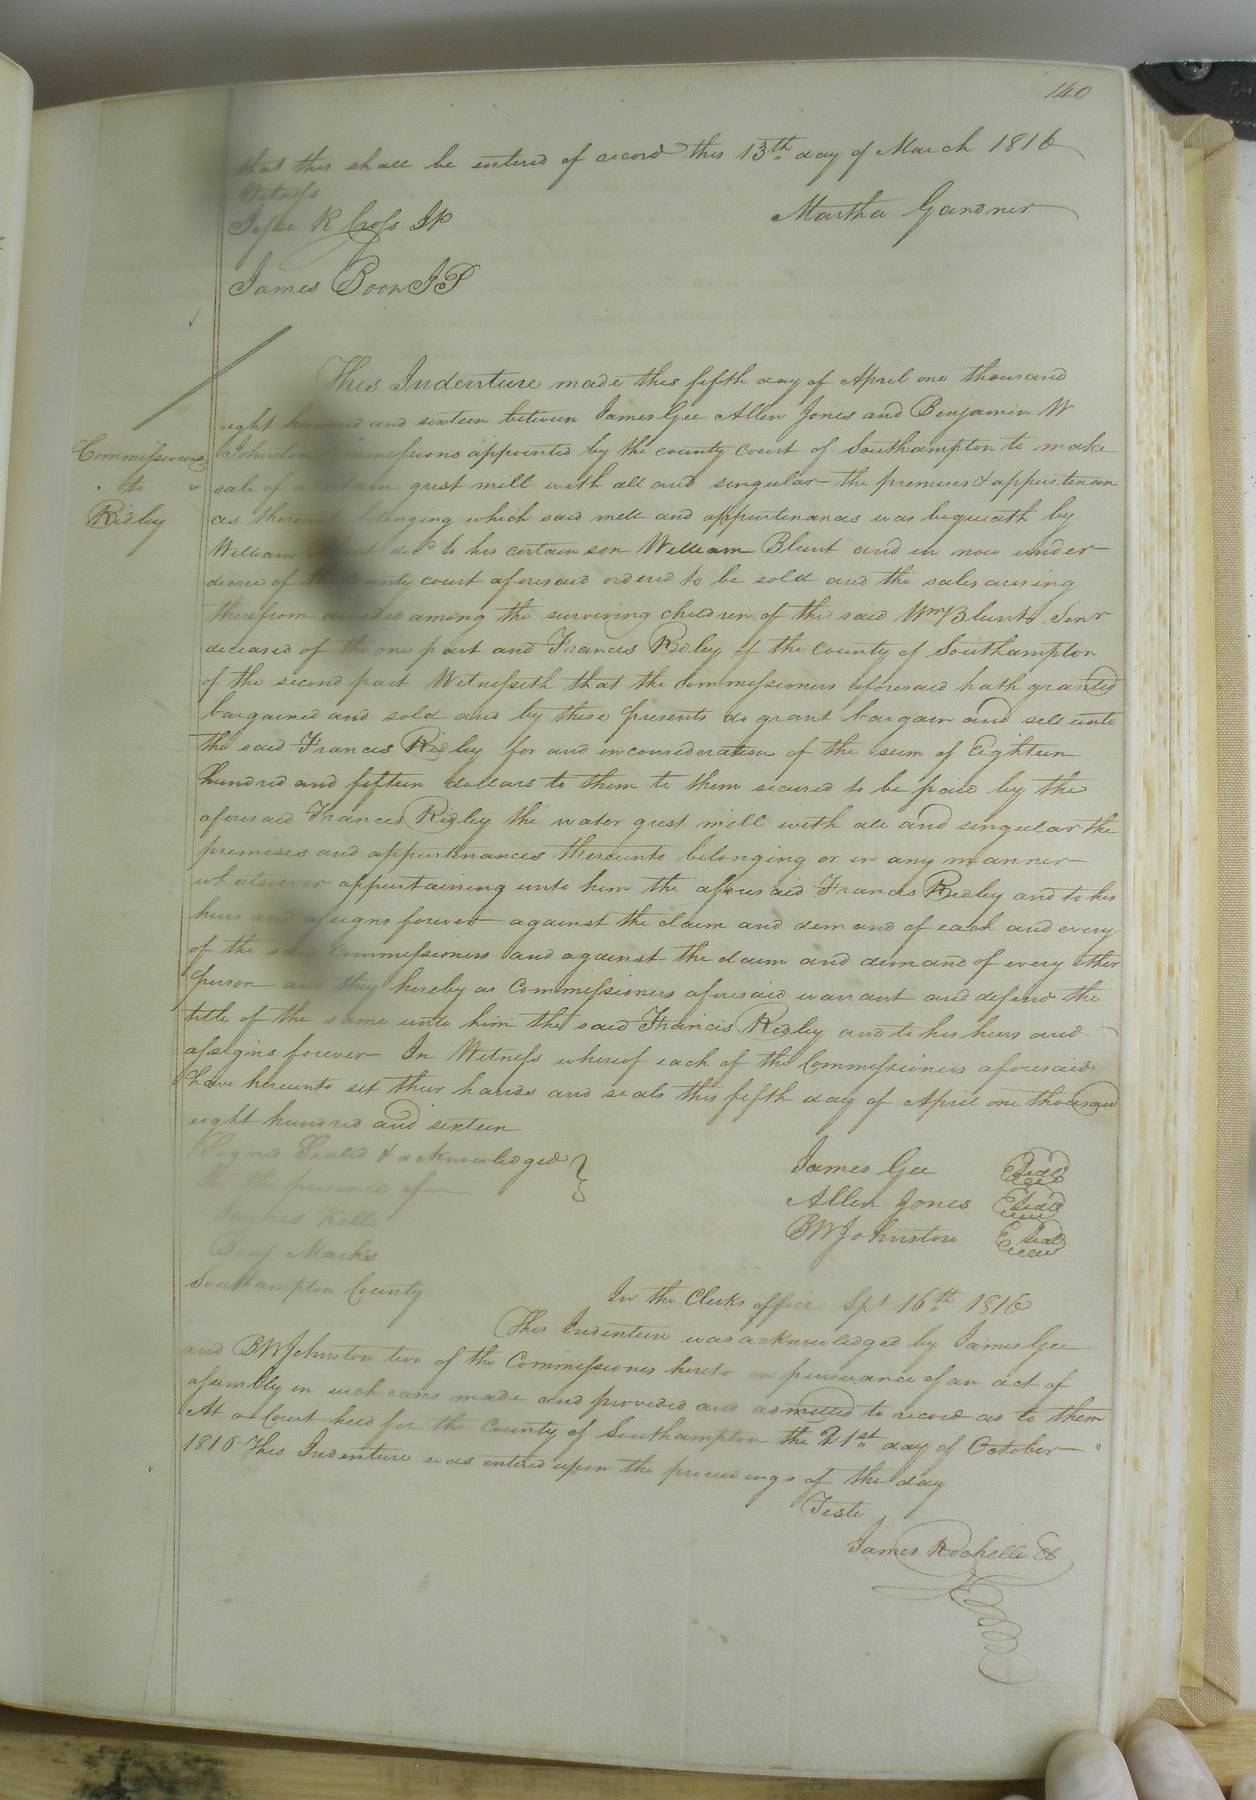 140
that this shall be entered of record this 13th day of March 1816
Witness
Jesse R Cross JP
Martha Gardner
James Boon JP
This Indenture made this fifth day of April one thousand
eight hundred and sixteen between James Gee Allen Jones and Benjamin W
Commissioners
to
Ridley
Johnston Commissions appointed by the county court of Southampton to make
sale of a certain grist mill with all and singular the premises & appurtenan
ces thereunto belonging which said mill and appurtenances was bequeath by
William Blunt decd to his certain son William Blunt and is now under
decree of the county court aforesaid ordered to be sold and the sales arising
therefrom divided among the surviving children of the said Wm Blunt Senr
deceased of the one part and Francis Ridley of the County of Southampton
of the second part Witnesseth that the Commissioners aforesaid hath granted
bargained and sold and by these presents do grant bargain and sell unto
the said Francis Ridley for and in consideration of the sum of Eighteen
hundred and fifteen dollars to them to them secured to be paid by the
aforesaid Francis Ridley the water grist mill with all and singular the
premises and appurtenances thereunto belonging or in any manner
whatsoever appurtaining unto him the aforesaid Francis Ridley and to his
heirs and assigns forever against the claim and demand of each and every
of the said Commissioners and against the claim and demand of every other
person and they hereby as Commissioners aforesaid warrant and defend the
title of the same unto him the said Francis Ridley and to his heirs and
assigns forever In Witness whereof each of the Commissioners aforesaid
have hereunto set their hands and seals this fifth day of April one thousand
eight hundred and sixteen
Signed Sealed & acknowledged
In the presence of
James Gee Seal
Allen Jones Seal
BWJohnston Seal
James Kello
Benj Marks
Southampton County
In the Clerks office Spt 16th 1816
This Indenture was acknowledged by James Gee
and BWJohnston two of the Commissiones hereto in pursuance of an act of
assembly in such cases made and provided and admitted to record as to them
At a Court held for the County of Southampton the 21st day of October
1816 This Indenture was entered upon the proceedings of the day
Teste
James Rochelle Cl